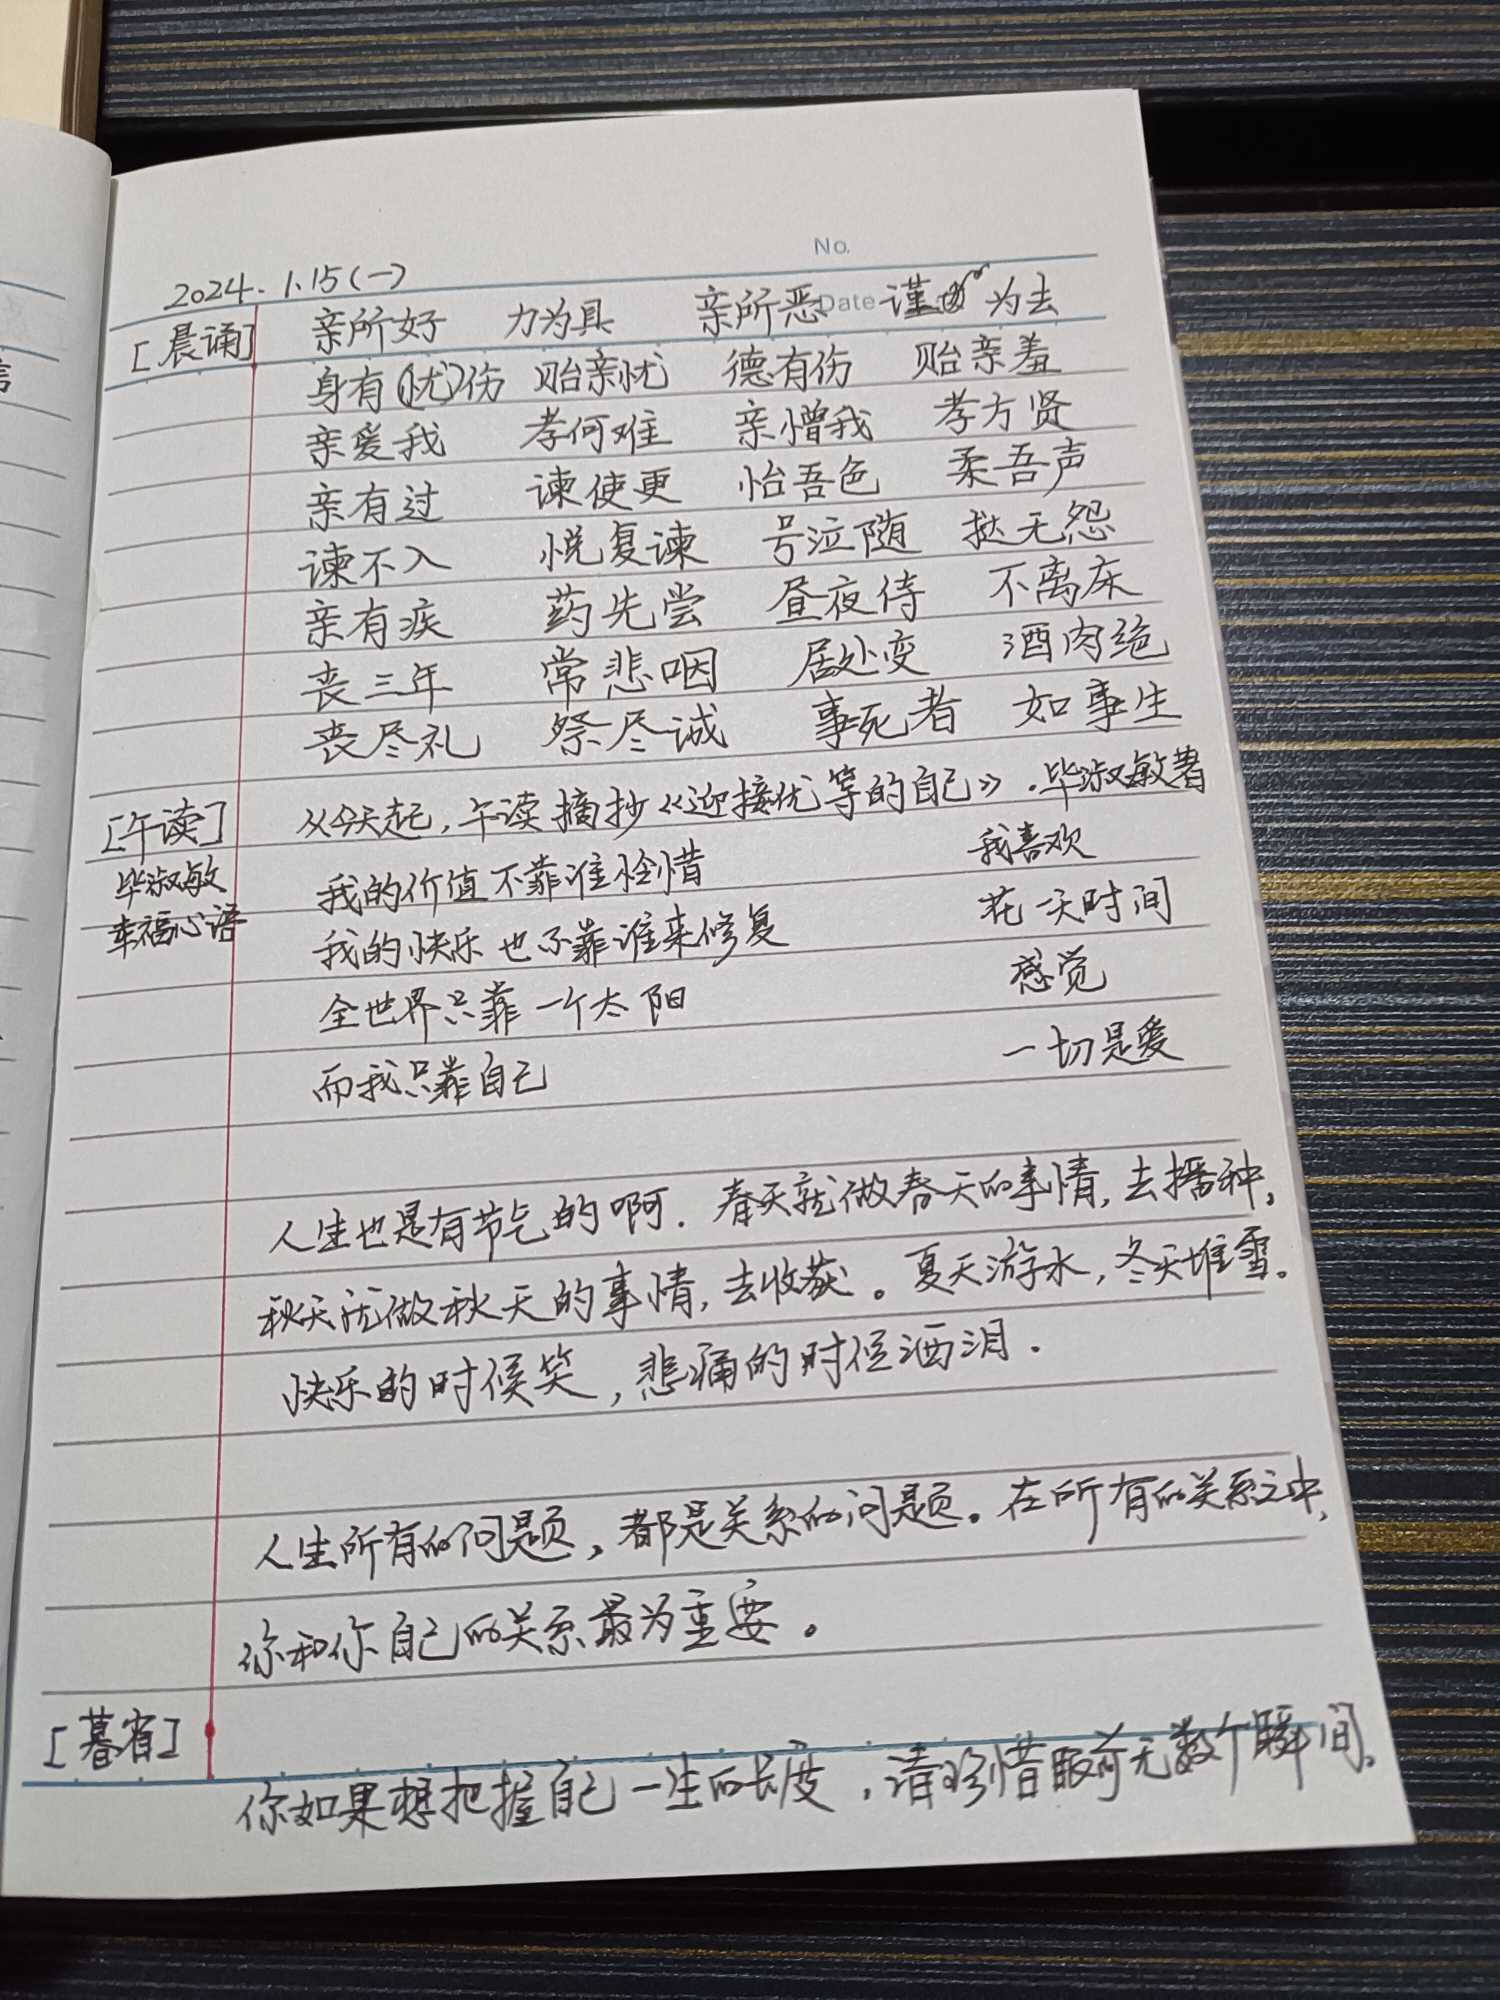 No.
2024.1.15(一)
Date
[晨诵] 亲所好 力为具 亲所恶 谨为去
身有(忧)伤 贻亲忧 德有伤 贻亲羞
亲爱我 孝何难 亲憎我 孝方贤
亲有过 谏使更 怡吾色 柔吾声
谏不入 悦复谏 号泣随 挞无怨
亲有疾 药先尝 昼夜侍 不离床
丧三年 常悲咽 居处变 酒肉绝
丧尽礼 祭尽诚 事死者 如事生
[午读] 从今天起,午读摘抄《迎接优等的自己》.毕淑敏著
毕淑敏 我的价值不靠谁怜惜 我喜欢
幸福心语 我的快乐也不靠谁来修复 花一天时间
全世界只靠一个太阳 感觉
而我只靠自己 一切是爱
人生也是有节气的啊.春天就做春天的事情,去播种,
秋天就做秋天的事情,去收获。夏天游水,冬天堆雪。
快乐的时候笑,悲痛的时候洒泪.
人生所有的问题,都是关系的问题。在所有的关系之中,
你和你自己的关系最为重要。
[暮省]
你如果想把握自己一生的长度,请珍惜眼前无数个瞬间。